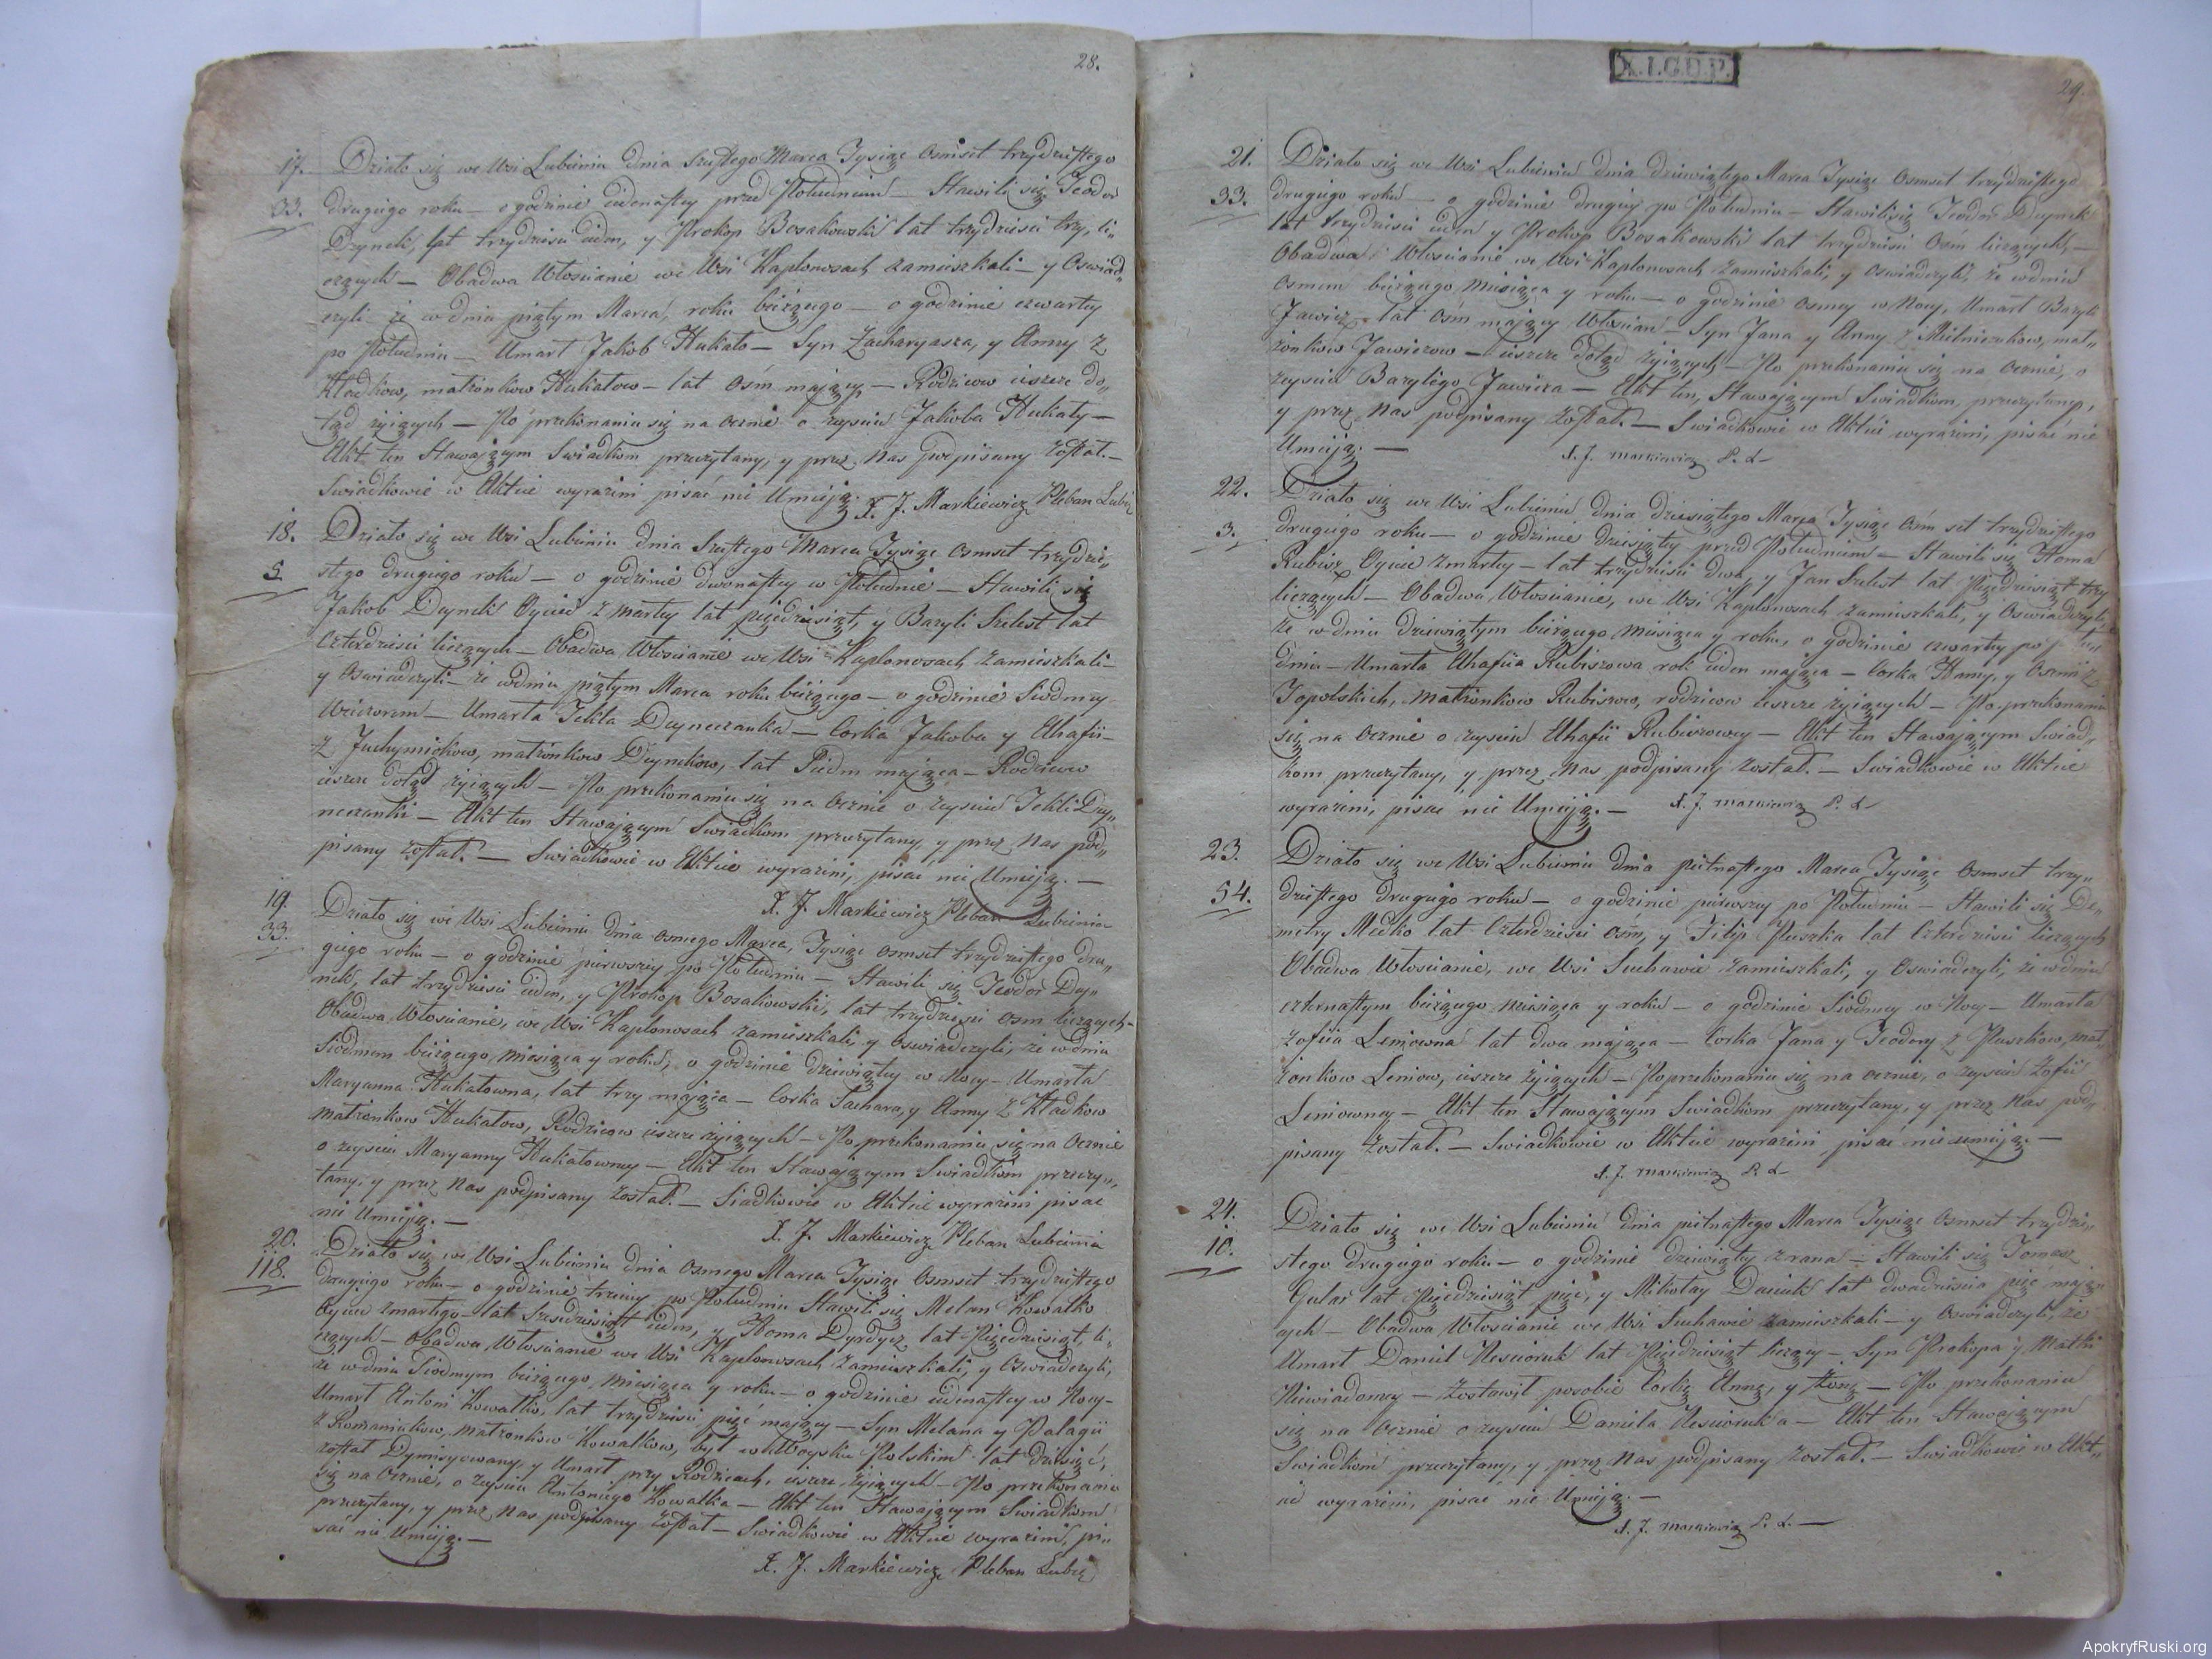 28.
17.
33.
Działo się we Wsi Lubieniu dnia szustego Marca Tysiąc osmset trzydziestego
drugiego roku — o godzinie iedenastey przed Południem — Stawili się Teodor
Dzynek, lat trzydzieści ieden, y Prokop Bosakowski lat trzydzieści trzy, li„
czących — Obadwa Włościanie we Wsi Kaplonosach zamieszkali — y Oswiad„
czyli — że w dniu piątym Marca, roku bieżącego — o godzinie czwartey
po Południu — Umarł Jakob Hukało — Syn Zacharyasza, y Anny z
Kładkow, małżonkow Hukałow — lat Ośm maiący, — Rodzicow ieszcze do„
tąd żyiących — Po przekonaniu się na ocznie o zeysciu Jakoba Hukały —
Akt ten Stawaiącym Swiadkom przeczytany, y przez Nas podpisany Został. —
Swiadkowie w Akcie wyrażeni pisać nie Umieią. X. J. Markiewicz Pleban Lubie
18.
5
Działo się we Wsi Lubieniu dnia Szustego Marca Tysiąc osmset trzydzie„
stego drugiego roku — o godzinie dwonastey w Południe — Stawili się
Jakob Deynek Oyciec zmarłey lat pięćdziesiąt, y Bazyli Szelest lat
Czterdzieści liczących — Obadwa Włościanie we Wsi Kaplonosach zamieszkali —
y Oswiadczyli — że w dniu piątym Marca roku bieżącego — o godzinie Siodmey
Wieczorem — Umarła Tekla Deyneczanka — Corka Jakoba y Ahafii —
z Juchymiokow, małżonkow Deynekow, lat Siedm maiąca — Rodzicow
ieszcze dotąd żyiących — Po przekonaniu się na ocznie o zeysciu Tekli Dey„
neczanki — Akt ten Stawaiącym Swiadkom przeczytany, y przez Nas pod„
pisany został. — Swiadkowie w Akcie wyrażeni, pisać nie Umieią. —
X. J. Markiewicz Pleban Lubienia
19.
33.
Działo się we Wsi Lubieniu dnia osmego Marca, Tysiąc osmset trzydziestego dru„
giego roku — o godzinie pierwszey po Południu — Stawili się Teodor Dey„
nek, lat trzydzieści ieden, y Prokop Bosakowski, lat trzydzieści osm liczących —
Obadwa Włościanie, we Wsi Kaplonosach zamieszkali, y Oswiadczyli, że w dniu
Siodmem bieżącego miesiąca y roku, o godzinie dziewiątey w Nocy — Umarła
Maryanna Hukałowna, lat trzy maiąca — Corka Zachara, y Anny z Kładkow
małżonkow Hukałow, Rodzicow ieszcze żyiących — Po przekonaniu się na ocznie
o zeysciu Maryanny Hukałowney — Akt ten Stawaiącym Swiadkom przeczy„
tany, y przez Nas podpisany został. — Siadkowie w Akcie wyrażeni pisać
nie Umieią. —
X. J. Markiewicz Pleban Lubienia
20.
118.
Działo się we Wsi Lubieniu dnia Osmego Marca Tysiąc Osmset trzydziestego
drugiego roku — o godzinie trzeciey po Południu Stawili się Melan Kowalko
Oyciec zmarłego — lat Sześdziesiąt ieden, y Homa Dyrdycz, lat Pięćdziesiąt, li„
czących — Obadwa Włościanie we Wsi Kaplonosach zamieszkali, y Oswiadczyli,
że w dniu Siodmym bieżącego miesiąca y roku — o godzinie iedenastey w Nocy —
Umarł Antoni Kowalko, lat trzydzieści pięć maiący — Syn Melana y Palagii
z Romaniukow, małżonkow Kowalkow, był w Woysku Polskim lat dziesięć,
został Dymisyowany, y Umarł przy Rodzicach, ieszcze żyiących — Po przekonaniu
się na ocznie, o zeysciu Antoniego Kowalka — Akt ten Stawaiącym Swiadkom
przeczytany, y przez Nas podpisany Został — Swiadkowie w Akcie wyrażeni, pi„
sać nie Umieią. —
X. J. Markiewicz Pleban Lubie
X.I.G.U.P.
29.
21.
33.
Działo się we Wsi Lubieniu dnia dziewiątego Marca Tysiąc Osmset trzydziestego
drugiego roku — o godzinie drugiey po Południu — Stawili się Teodor Deynek
lat trzydzieści ieden y Prokop Bosakowski lat trzydzieści Ośm liczących, —
Obadwa Włościanie we Wsi Kaplonosach Zamieszkali, y Oswiadczyli, że w dniu
Osmem bieżącego miesiąca y roku — o godzinie Osmey w Nocy, Umarł Bazyli
Jawicz — lat Ośm maiący Włościan — Syn Jana y Anny z Mielniczukow, mał„
żonkow Jawiczow — ieszcze dotąd żyiących — Po przekonaniu się na ocznie, o
zeysciu Bazylego Jawicza — Akt ten, Stawaiącym Swiadkom przeczytany,
y przez Nas podpisany Został. — Swiadkowie w Akcie wyrażeni, pisać nie
Umieią. —
X. J. Markiewicz P. L —
22.
3.
Działo się we Wsi Lubieniu dnia dziesiątego Marca Tysiąc Ośm set trzydziestego
drugiego roku — o godzinie dziesiątey przed Południem — Stawili się Homa
Rubisz Oyciec zmarłey — lat trzydzieści dwa, y Jan Szelest lat Pięćdziesiąt trzy
liczących — Obadwa Włościanie, we Wsi Kaplonosach zamieszkali, y Oswiadczyli,
że w dniu dziewiątym bieżącego miesiąca y roku, o godzinie czwartey po
dniu — Umarła Ahafiia Rubiszowa rok ieden maiąca — Corka Homy, y Osmii z
Topolskich, małżonkow Rubiszow, rodzicow ieszcze żyiących — Po przekonaniu
się na ocznie o zeysciu Ahafii Rubiszowey — Akt ten Stawaiącym Swiad„
kom przeczytany, y przez Nas podpisany został. — Swiadkowie w Akcie
wyrażeni, pisać nie Umieią. —
X. J. Markiewicz P. L —
23.
54.
Działo się we Wsi Lubieniu dnia pietnastego Marca Tysiąc Osmset trzy„
dziestego drugiego roku — o godzinie pierwszey po Południu — Stawili się De„
metry Medko lat Czterdzieści Ośm, y Filip Pluszka lat Czterdzieści liczących
Obadwa Włościanie, we Wsi Suchawie zamieszkali, y Oswiadczyli, że w dniu
czternastym bieżącego miesiąca y roku — o godzinie Siodmey w Nocy — Umarła
Zofiia Leniowna lat dwa maiąca — Corka Jana y Teodory z Pluszkow, mał„
żonkow Leniow, ieszcze żyiących — Po przekonaniu się na ocznie, o zeysciu Zofii
Leniowney — Akt ten Stawaiącym Swiadkom przeczytany, y przez Nas pod„
pisany został. — Swiadkowie w Akcie wyrażeni pisać nie umieią. —
X. J. Markiewicz P. L —
24.
10.
Działo się we Wsi Lubieniu dnia pietnastego Marca Tysiąc Osmset trzydzie„
stego drugiego roku — o godzinie dziewiątey zrana — Stawili się Tomasz
Gulaś lat Pięćdziesiąt pięć, y Mikołay Daniuk lat dwadzieścia pięć maią„
cych — Obadwa Włościanie we Wsi Suchawie zamieszkali — y Oswiadczyli, że
Umarł Daniel Nesteruk lat Pięćdziesiąt liczący — Syn Prokopa y Matki
Niewiadomey — zostawił po sobie Corkę Annę, y żonę — Po przekonaniu
się na ocznie o zeysciu Daniela Nesteruka — Akt ten Stawaiącym
Swiadkom przeczytany, y przez Nas podpisany został. — Swiadkowie w Akt„
cie wyrażeni, pisać nie Umieią. —
X. J. Markiewicz P. L. —
ApokryfRuski.org